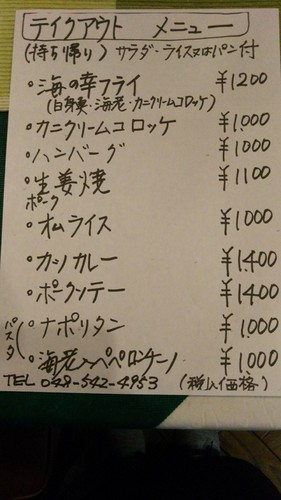 テイクアウト メニュー
(持ち帰り) サラダ・ライス又はパン付
・海の幸フライ ¥1200
(白身魚・海老・カニクリームコロッケ)
・カニクリームコロッケ ¥1,000
・ハンバーグ ¥1000
・生姜焼 ¥1100
ポーク
・オムライス ¥1000
・カツカレー ¥1,400
・ポークソテー ¥1400
パスタ
・ナポリタン ¥1,000
・海老ペペロンチーノ ¥1,000
TEL 048-542-4953 (税込価格)